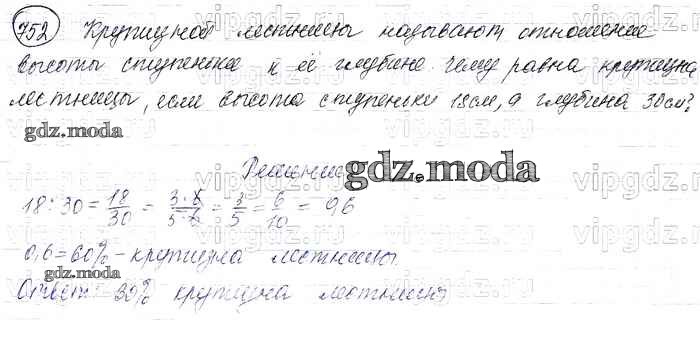 752 Крутизной лестницы называют отношение
высоты ступеньки к её глубине. Чему равна крутизна
лестницы, если высота ступеньки 18см, а глубина 30см?
gdz.moda
Решение
gdz.moda
18:30 = 18/30 = 3·6/5·6 = 3/5 = 6/10 = 0,6
0,6=60% - крутизна лестницы
Ответ: 30% крутизна лестницы
vipgdz.ru